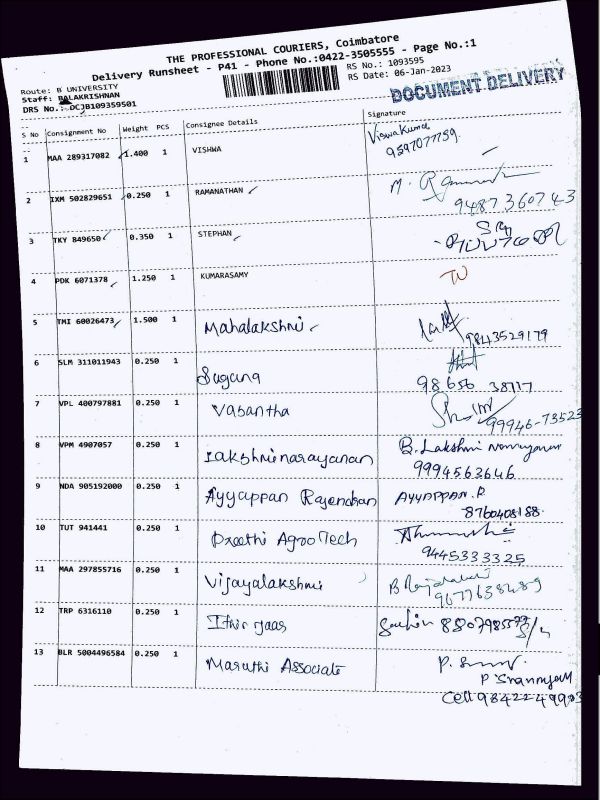 THE PROFESSIONAL COURIERS, Coimbatore
Delivery Runsheet - P41 - Phone No.:0422-3505555 - Page No.:1
Route: B UNIVERSITY
Staff: BALAKRISHNAN
DRS No.: DCJB109359501
RS No.: 1093595
RS Date: 06-Jan-2023
DOCUMENT DELIVERY
S No Consignment No Weight PCS Consignee Details Signature
1 MAA 289317082 1.400 1 VISHWA
9597077759
2 IXM 502829651 0.250 1 RAMANATHAN
9487360743
3 TKY 849650 0.350 1 STEPHAN
4 PDK 6071378 1.250 1 KUMARASAMY
5 TMI 60026473 1.500 1 Mahalakshmi
9843529179
6 SLM 311011943 0.250 1 Suguna
98656 38717
7 VPL 400797881 0.250 1 Vasantha
99946-73523
8 VPM 4907057 0.250 1 Lakshminarayanan B. Lakshmi Narayanan
9994563646
9 NDA 905192000 0.250 1 Ayyappan Rajendran AYYAPPAN.R
8760408188
10 TUT 941441 0.250 1 Preethi Agro Tech
9445333325
11 MAA 297855716 0.250 1 Vijayalakshmi
9677638489
12 TRP 6316110 0.250 1
13 BLR 5004496584 0.250 1 Maruthi Associate
Cell 9842249903